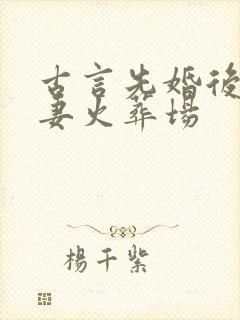 古言先婚後
妻火葬場
楊千紫